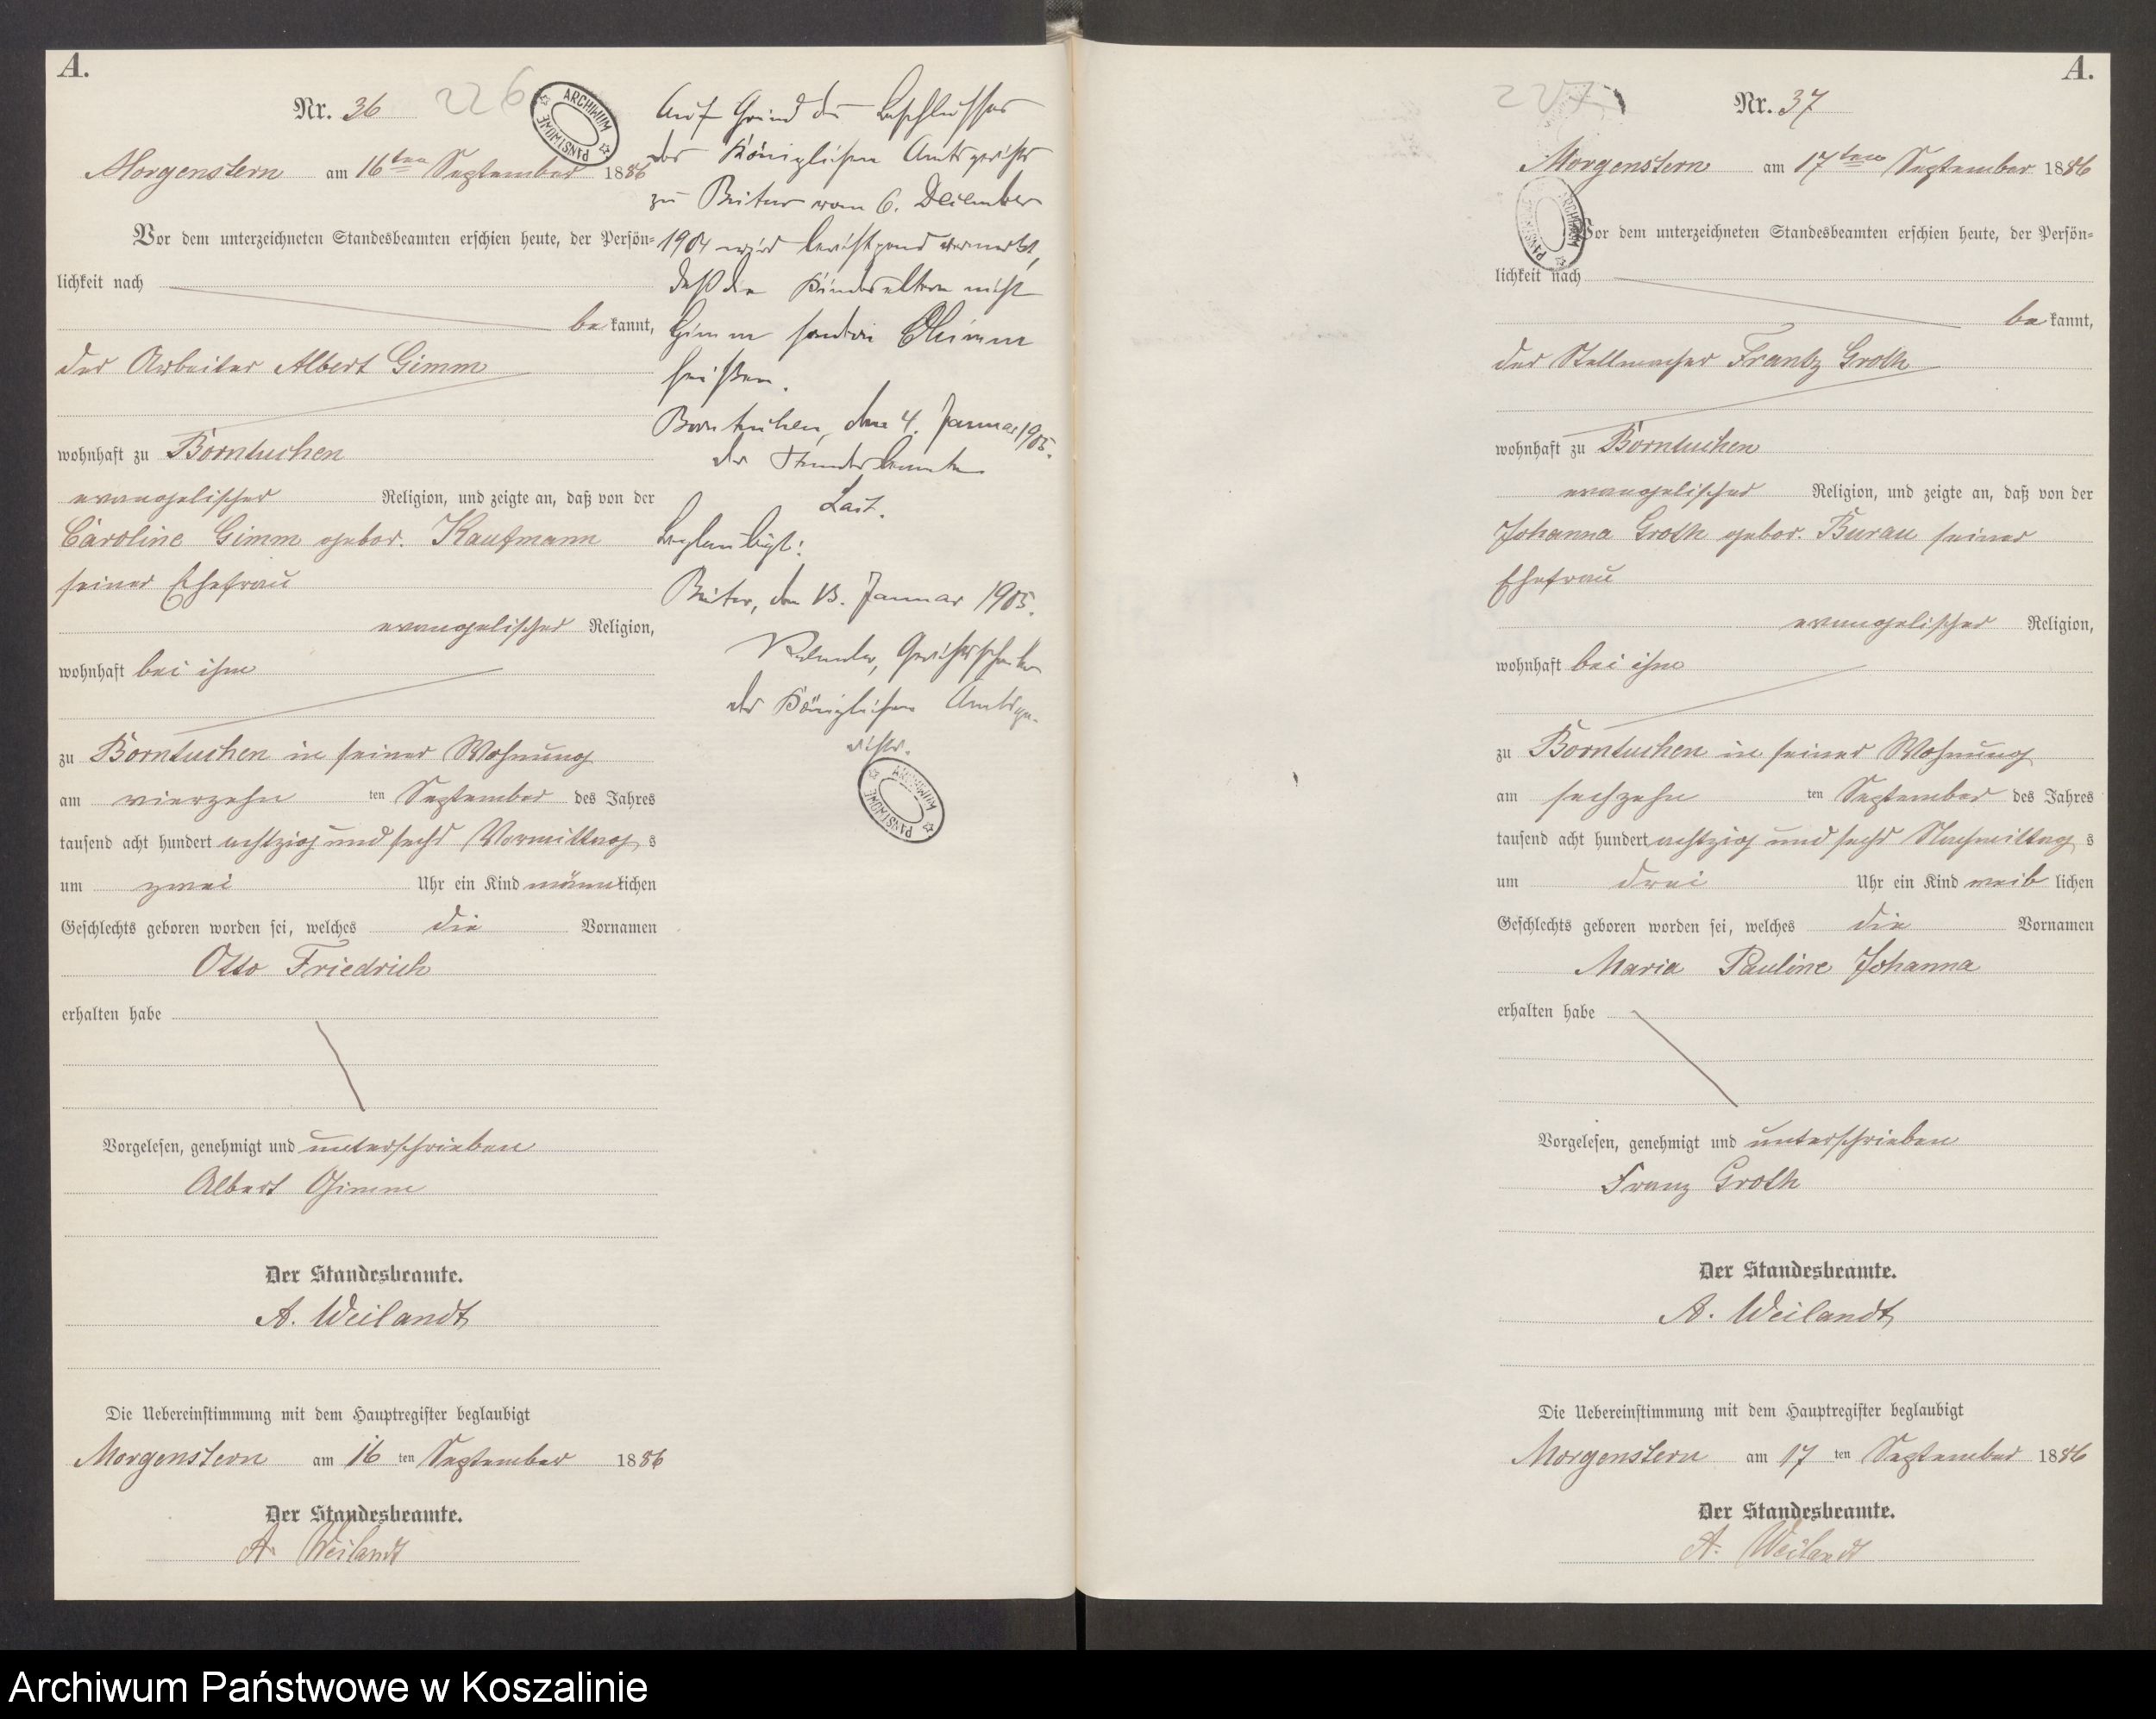 A.
Nr. 36
226
ARCHIWUM PAŃSTWOWE
Morgenstern am 16ten September 1886
Vor dem unterzeichneten Standesbeamten erschien heute, der Persön=
lichkeit nach
be kannt,
der Arbeiter Albert Gimm
wohnhaft zu Borntuchen
evangelischer Religion, und zeigte an, daß von der
Caroline Gimm gebor. Kaufmann
seiner Ehefrau
evangelischer Religion,
wohnhaft bei ihm
zu Borntuchen in seiner Wohnung
am vierzehn ten September des Jahres
tausend acht hundert achtzig und sechs Vormittag s
um zwei Uhr ein Kind männlichen
Geschlechts geboren worden sei, welches die Vornamen
Otto Friedrich
erhalten habe
Vorgelesen, genehmigt und unterschrieben
Albert Gimm
Der Standesbeamte.
A. Weilandt
Die Uebereinstimmung mit dem Hauptregister beglaubigt
Morgenstern am 16 ten September 1886
Der Standesbeamte.
A. Weilandt
Auf Grund des Beschlusses
des Königlichen Amtsgerichts
zu Bütow vom 6. Dezember
1904 wird berichtigend vermerkt,
daß die Kindeseltern nicht
Gimm sondern
heißen.
Borntuchen, den 4. Januar 1905.
der Standesbeamte
Beglaubigt:
Bütow, den 13. Januar 1905.
Gerichtsschreiber
des Königlichen Amtsge-
richts.
ARCHIWUM PAŃSTWOWE
A.
Nr. 37
227
ARCHIWUM PAŃSTWOWE
Morgenstern am 17ten September 1886
Vor dem unterzeichneten Standesbeamten erschien heute, der Persön=
lichkeit nach
be kannt,
der Stellmacher Frantz Groth
wohnhaft zu Borntuchen
evangelischer Religion, und zeigte an, daß von der
Johanna Groth gebor. Burau seiner
Ehefrau
evangelischer Religion,
wohnhaft bei ihm
zu Borntuchen in seiner Wohnung
am sechzehn ten September des Jahres
tausend acht hundert achtzig und sechs Nachmittag s
um drei Uhr ein Kind weib lichen
Geschlechts geboren worden sei, welches die Vornamen
Maria Pauline Johanna
erhalten habe
Vorgelesen, genehmigt und unterschrieben
Franz Groth
Der Standesbeamte.
A. Weilandt
Die Uebereinstimmung mit dem Hauptregister beglaubigt
Morgenstern am 17 ten September 1886
Der Standesbeamte.
A. Weilandt
Archiwum Państwowe w Koszalinie